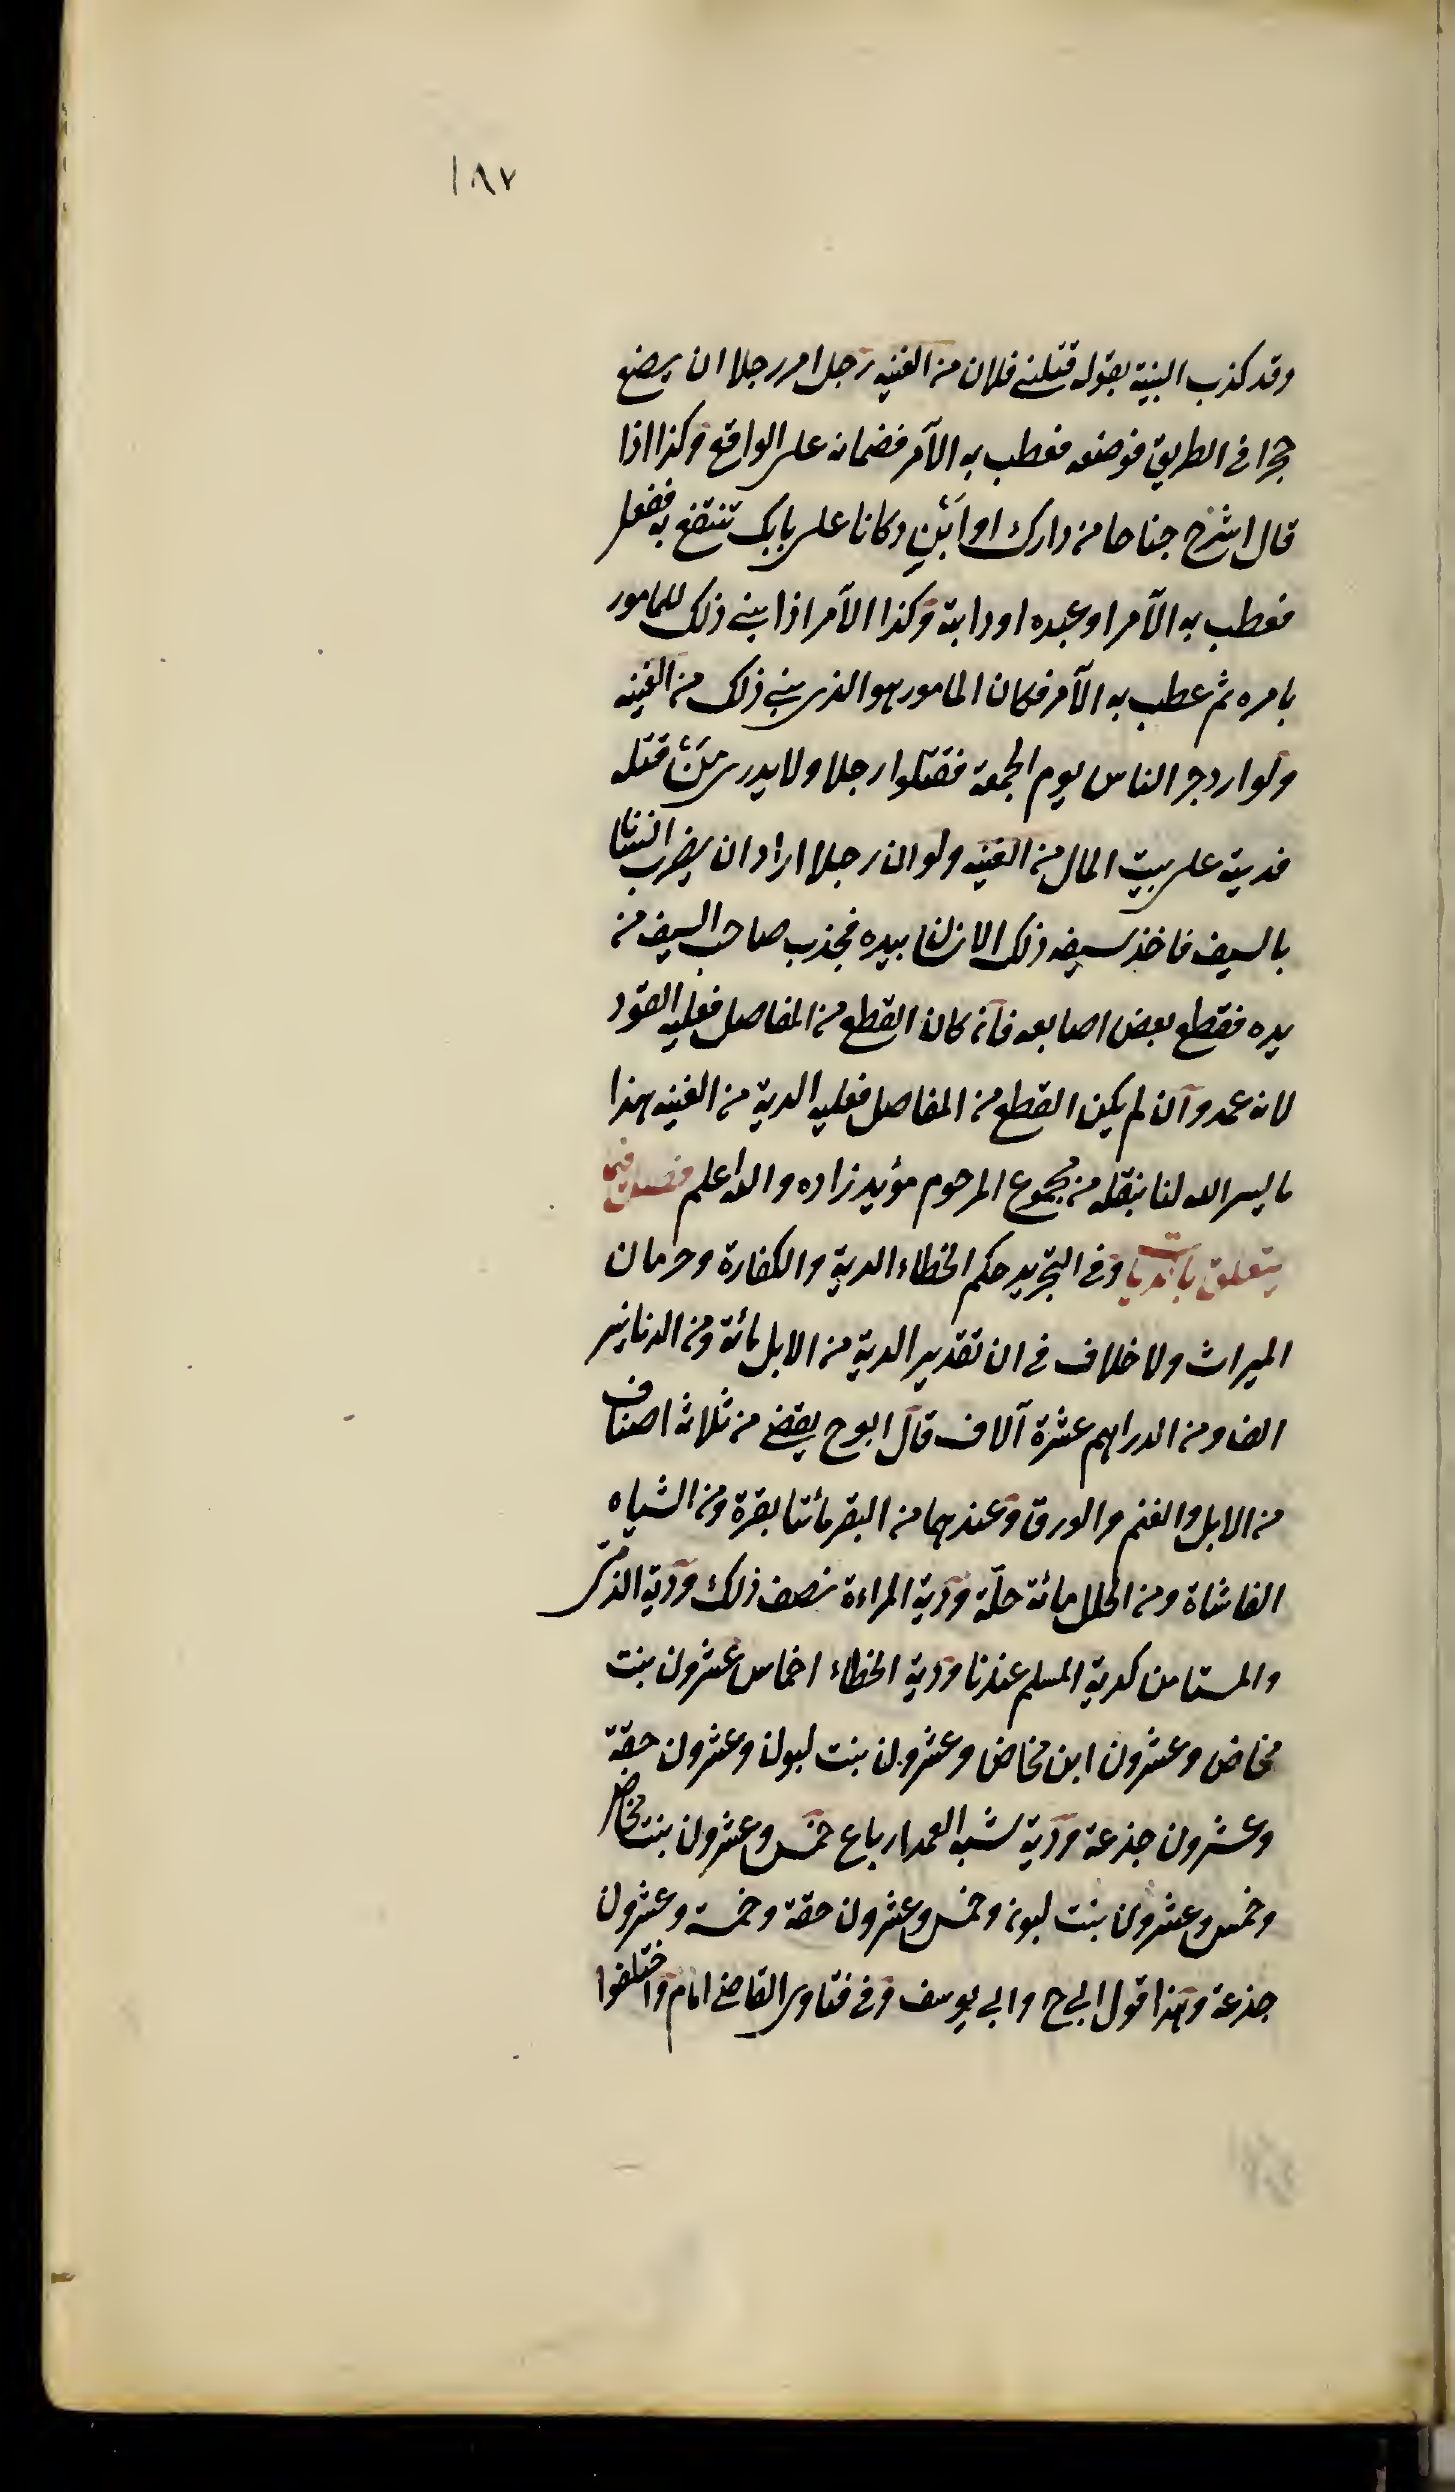 ١٨٧
وقد كذب البينة بقوله قتلني فلان من القنيه رجل امر رجلا ان يضع
حجرا في الطريق فوضعه فعطب به الآمر فضمانه على الواقع وكذا اذا
قال اشرع جناحا من دارك او ابْنِ دكانا على بابك تنتفع به ففعل
فعطب به الآمر او عبده او دابته وكذا الآمر اذا بنى ذلك للمامور
بامره ثم عطب به الآمر فكان المامور هو الذى بنى ذلك من القنيه
ولو ازدحم الناس يوم الجمعة فقتلوا رجلا ولا يدرى مَنْ قتله
فديته على بيت المال من القنيه ولو ان رجلا اراد ان يضرب انسانا
بالسيف فاخذ سيفه ذلك الانسان بيده فجذب صاحب السيف من
يده فقطع بعض اصابعه فان كان القطع من المفاصل فعليه القود
لانه عمد وان لم يكن القطع من المفاصل فعليه الدية من القنيه هذا
ما يسر الله لنا بنقله من مجموع المرحوم مؤيد زاده والله اعلم فصل فيما
يتعلق بالديات وفى التجريد حكم الخطاء الدية والكفارة وحرمان
الميراث ولا خلاف فى ان تقدير الدية من الابل مائة ومن الدنانير
الف ومن الدراهم عشرة آلاف قال ابوح يقضى من ثلاثة اصناف
من الابل والغنم والورق وعندهما من البقر مائتا بقرة ومن الشياه
الفا شاة ومن الحلل مائة حلّة ودية المراءة نصف ذلك ودية الذمّى
والمستامن كدية المسلم عندنا ودية الخطاء اخماس عشرون بنت
مخاض وعشرون ابن مخاض وعشرون بنت لبون وعشرون حقة
وعشرون جذعة ودية شبه العمد ارباع خمس وعشرون بنت مخاض
وخمس وعشرون بنت لبون وخمس وعشرون حقة وخمسة وعشرون
جذعة وهذا قول ابى ح وابى يوسف وفى فتاوى القاضى امام واختلفوا